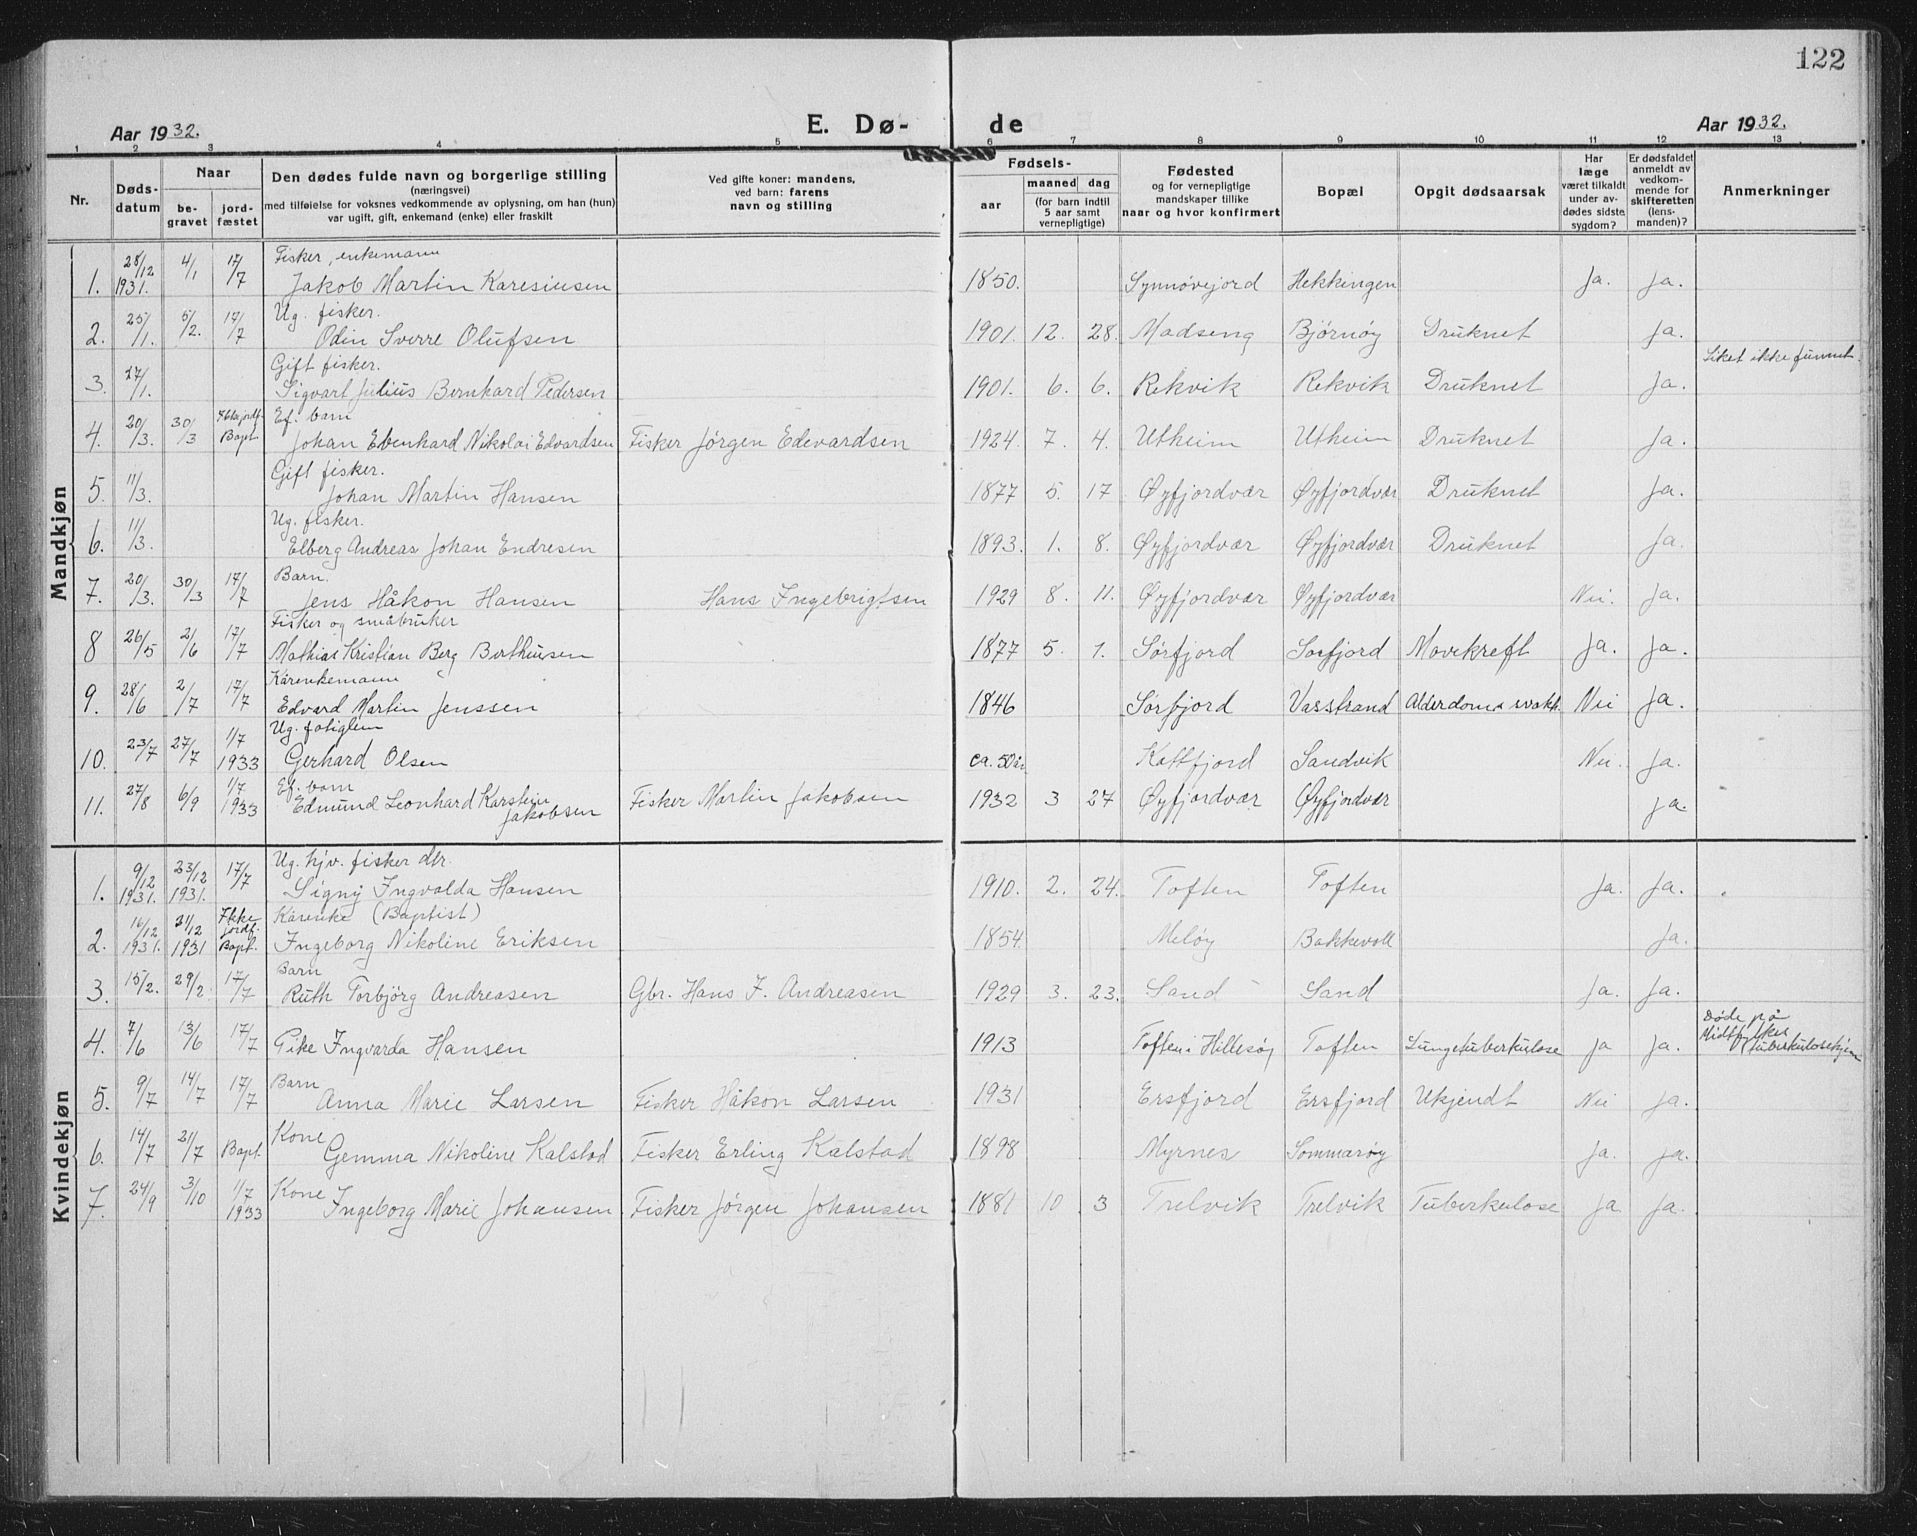 122
Aar 1932. E. Dø- de Aar 1932.
1 2 3 4 5 6 7 8 9 10 11 12 13
Nr. Døds-datum Naar be-gravet jord-fæstet Den dødes fulde navn og borgerlige stilling (næringsvei) med tilføielse for voksnes vedkommende av oplysning, om han (hun) var ugift, gift, enkemand (enke) eller fraskilt Ved gifte koner: mandens, ved barn: farens navn og stilling Fødsels- aar maaned dag (for barn indtil 5 aar samt vernepligtige) Fødested og for vernepligtige mandskaper tillike naar og hvor konfirmert Bopæl Opgit dødsaarsak Har læge været tilkaldt under av-dødes sidste sygdom? Er dødsfaldet anmeldt av vedkom-mende for skifteretten (lens-manden)? Anmerkninger
Mandkjøn
Fisker, enkemann
1. 28/12 1931. 4/1 17/7 Jakob Martin Karesiusen 1850. Synnøvejord Hekkingen Ja. Ja.
Ug. fisker.
2. 25/1. 5/2. 17/7 Odin Sverre Olufsen 1901. 12. 28. Madseng Bjørnøy Druknet Ja.
Gift fisker.
3. 27/1. Sigvart Julius Bernhard Pedersen 1901. 6. 6. Rekvik Rekvik Druknet Ja. Liket ikke funnet.
Ef. barn
4. 20/3. 30/3 Bapt. Johan Ebenhard Nikolai Edvardsen Fisker Jørgen Edevardsen 1924. 7. 4. Utheim Utheim Druknet Ja.
Gift fisker.
5. 11/3. Johan Martin Hansen 1877 5. 17 Øyfjordvær Øyfjordvær Druknet Ja.
Ug. fisker.
6. 11/3. Elberg Andreas Johan Endresen 1893. 1. 8. Øyfjordvær Øyfjordvær Druknet Ja.
Barn.
7. 20/3. 30/3 17/7 Jens Håkon Hansen Hans Ingebrigtsen 1929 8. 11. Øyfjordvær Øyfjordvær Nei. Ja.
Fisker og småbruker
8 26/5 2/6 17/7 Mathias Kristian Berg Berthinsen 1877 5. 1. Sørfjord Sørfjord Mavekreft Ja. Ja.
Kårenkemann
9. 28/6 2/7 17/7 Edvard Martin Jenssen 1846 Sørbjord Vasstrand Alderdoms svakh. Nei Ja.
Ug. fatiglem
10. 23/7 27/7 1/7 1933 Gerhard Olsen ca. 50 år Kattfjord Sandvik Nei. Ja.
Ef. barn
11. 27/8 6/9 1/7 1933 Edmund Leonhard Karstein Jakobsen Fisker Martin Jakobsen 1932 3 27 Øyfjordvær Øyfjordvær Ja.
Kvindekjøn
Ug. hjv. fisker dtr.
1. 9/12 1931. 23/12 1931. 17/7 Signy Ingvalda Hansen 1910. 2. 24. Toften Toften Ja. Ja.
Kårenke (Baptist)
2. 16/12 1931. 31/12 1931 Ikke jordf. Bapt. Ingeborg Nikoline Eriksen 1854. Meløy Bakkevoll Ja.
Barn
3. 15/2. 29/2. 17/7 Ruth Torbjörg Andreasen Gbr. Hans J. Andreasen 1929 3. 23. Sand Sand Ja. Ja.
4. 7/6 13/6 17/7 Pike Ingvarda Hansen 1913 Toften i Hillesøy Toften Lungetuberkulose Ja Ja. Døde på Midtfylket tuberkulosehjem
Barn
5. 9/7 14/7 17/7 Anna Marie Larsen Fisker Håkon Larsen 1931 Ersfjord Ersfjord Ukjendt Nei Ja.
Kone
6. 14/7 21/7 Bapt. Gemma Nikoline Kalstad Fisker Erling Kalstad 1898 Myrnes Sommarøy Ja. Ja.
Kone
7. 24/9 3/10 1/7 1933 Ingeborg Marie Johansen Fisker Jørgen Johansen 1881 10 3 Trelvik Trelvik Tuberkulose Ja Ja.